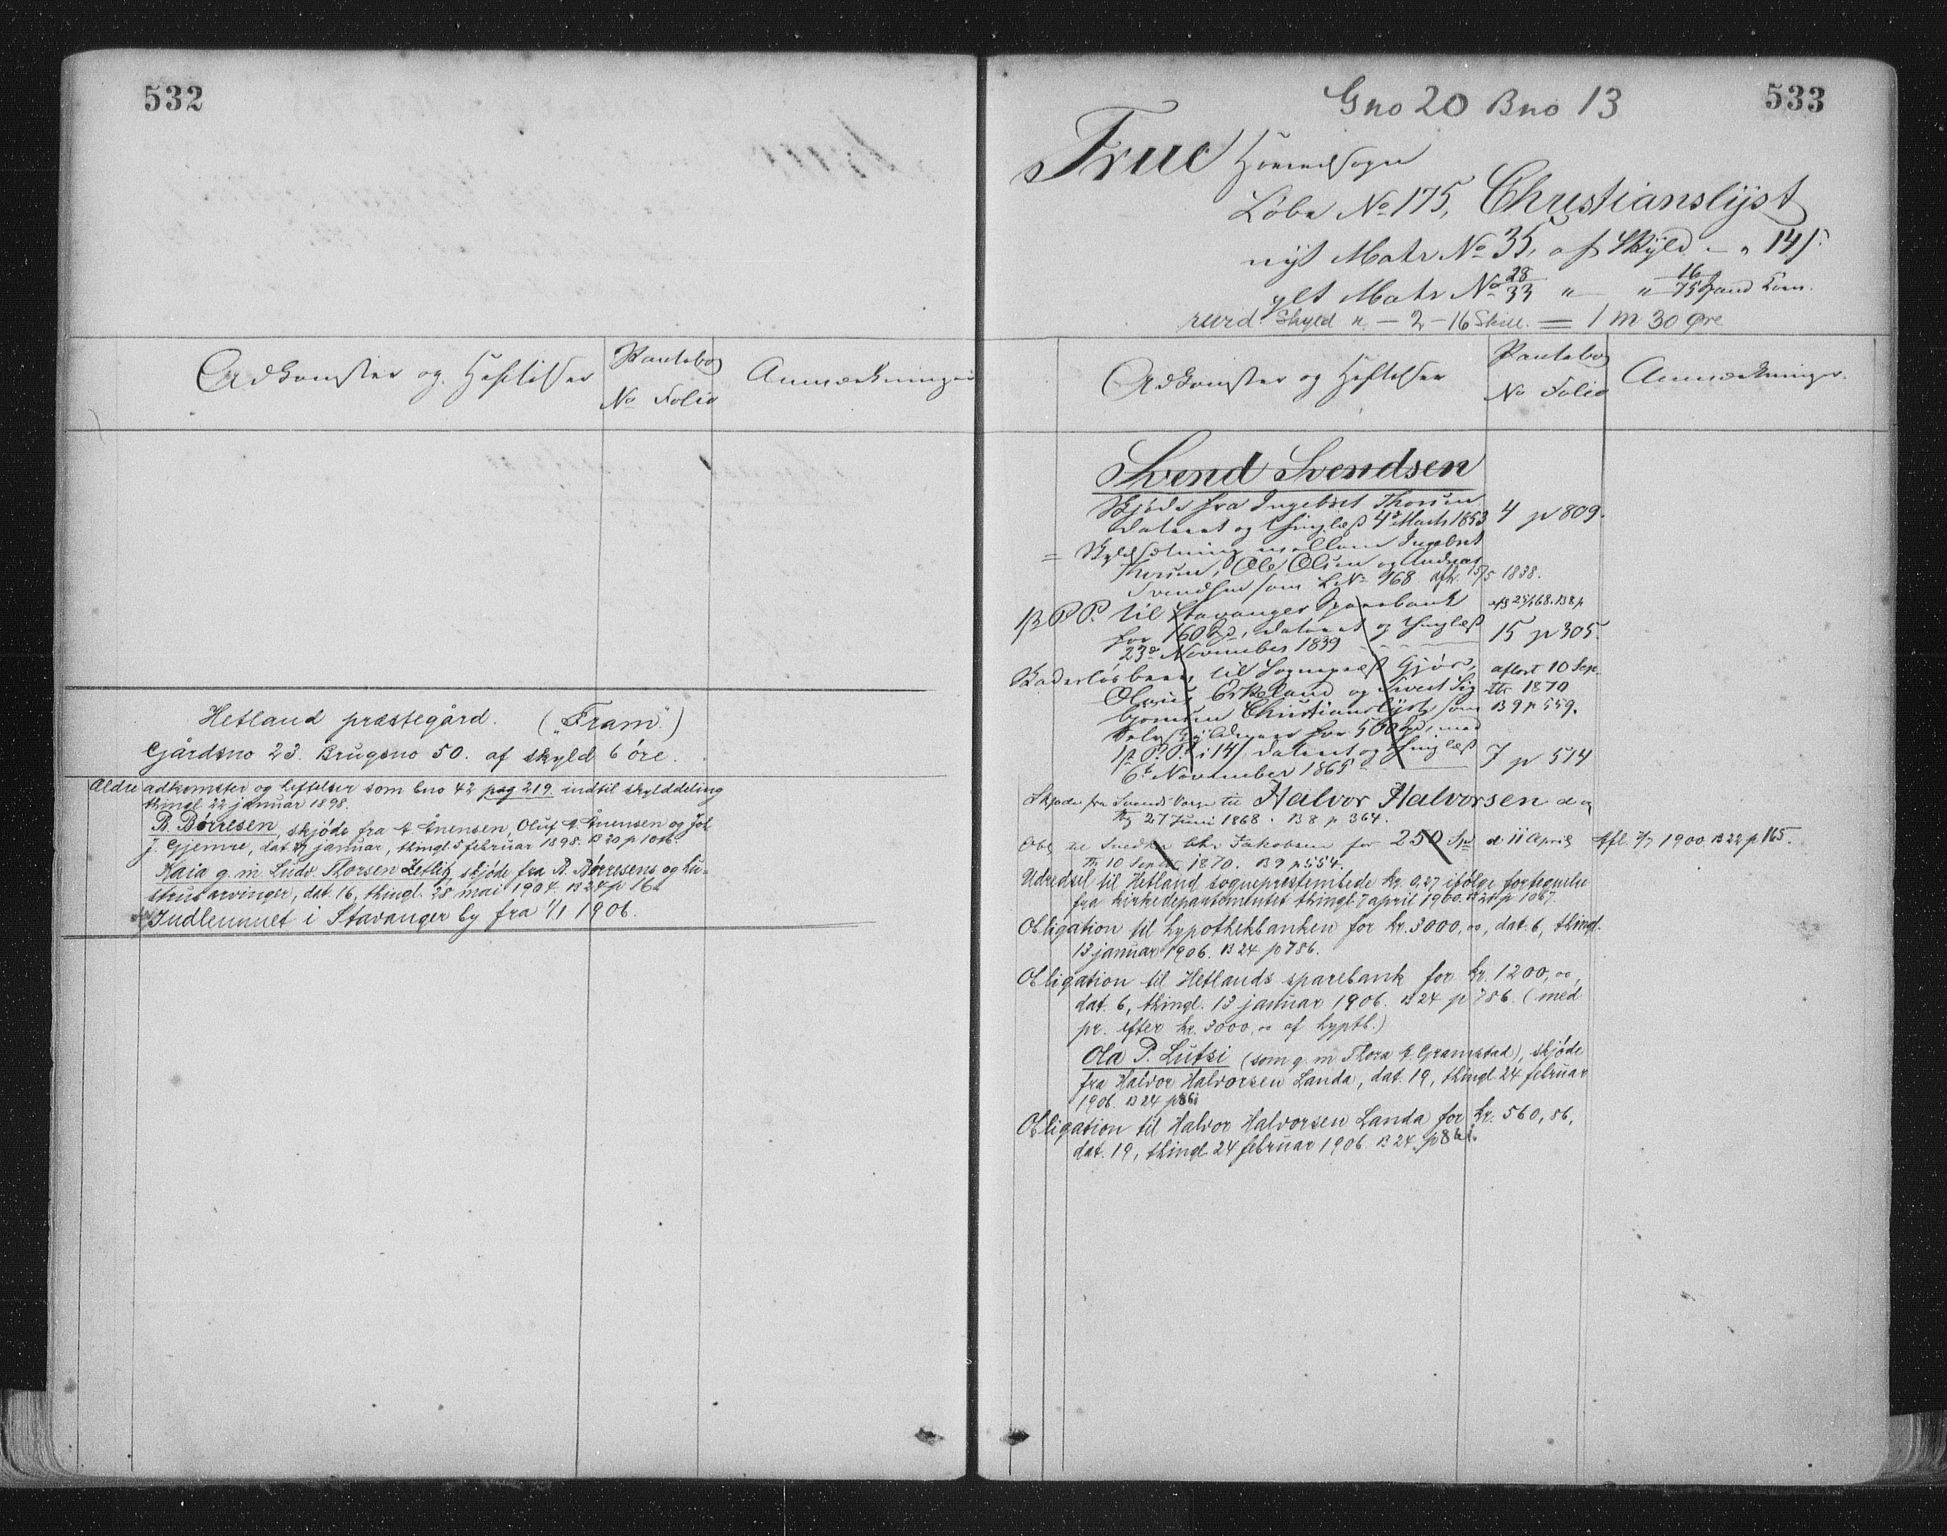 532
Adkomster og Heftelser
Pantebog
No Folio
Anmærkninger
Hetland præstegård. ("Fram")
Gårdsno 23. Brugsno 50. af skyld 6 öre.
Ældre adkomster og heftelser som bno 42 pag 219. indtil skylddeling
thingl. 22 januar 1898.
B. Börresen, skjöde fra Enensen, Oluf Enensen og Joh.
J. Gjemre, dat. januar, thingl. 5 februar 1898. B 20 p 1086.
Kaia g. m. Ludv. Thorsen Hetlig, skjöde fra B. Börresens og hu-
strus arvinger, dat. 16, thingl. 28 mai 1904. B 23 p 161
Indlemmet i Stavanger by fra 1/1 1906.
533
Gno 20 Bno 13
True Hovedsogn
Löbe No 175, Christianslyst
nyt Matr No 35, af Skyld - " 14 ß
glt Matr No 28/33 " " 16/75 Spand Korn.
revid. Skyld " - 2 - 16 Skill. = 1 m 30 Øre
Adkomster og Heftelser
Pantebog
No Folio
Anmærkninger.
Svend Svendsen
Skjöde fra Ingebret Thorsen
dateret og thinglæst 4de Marts 1853 4 p 809.
= Skyldsætning mellem Ingebret
Thorsen, Ole Olsen og Andreas
Svendsen som L No 168 afh. 15/5 1838.
1ß P. P. til Stavanger Sparebank
for 160 Spd, dateret og thinglæst 15 p 305.
23de November 1839
Skadeslösbrev til Sogneprest Gjör, aflæst 10 Sep-
Olaus Erkeland og Sivert Sig- tbr 1870
björnsen Christianslyst som B 9 p 559.
Selvskyldnere for 500 Spd, med
1ß P. P. i 14/ dateret og thinglæst 7 p 514
6te November 1865
Skjöde fra Svends Verge til Halvor Halvorsen d og
thg 27 Juni 1868. B 8 p 364.
Obl til Snedker Chr Jakobsen for 250 Sp d. 11 April Afl. 7/7 1900. B 22 p 165.
Th 10 Septbr 1870. B 9 p 554.
Udredsel til Hetland sogneprestembede kr 0,27 ifölge fortegnelse
fra kirkedepartementet thingl. 7 april 1900. B 21 p 1067.
Obligation til hypothekbanken for kr. 3000, oo, dat. 6, thingl.
13 januar 1906. B 24 p 786.
Obligation til Hetlands sparebank for kr. 1200, oo,
dat. 6, thingl. 13 januar 1906. B 24 p 786. (med
pr. efter kr. 3000, oo af hyptb.)
Ola P. Lutsi (som g. m. Thora Gramstad), skjöde
fra Halvor Halvorsen Landa, dat. 19, thingl. 24 februar
1906. B 24 p 861
Obligation til Halvor Halvorsen Landa for kr. 560, 86,
dat. 19, thingl. 24 februar 1906. B 24 p 861.